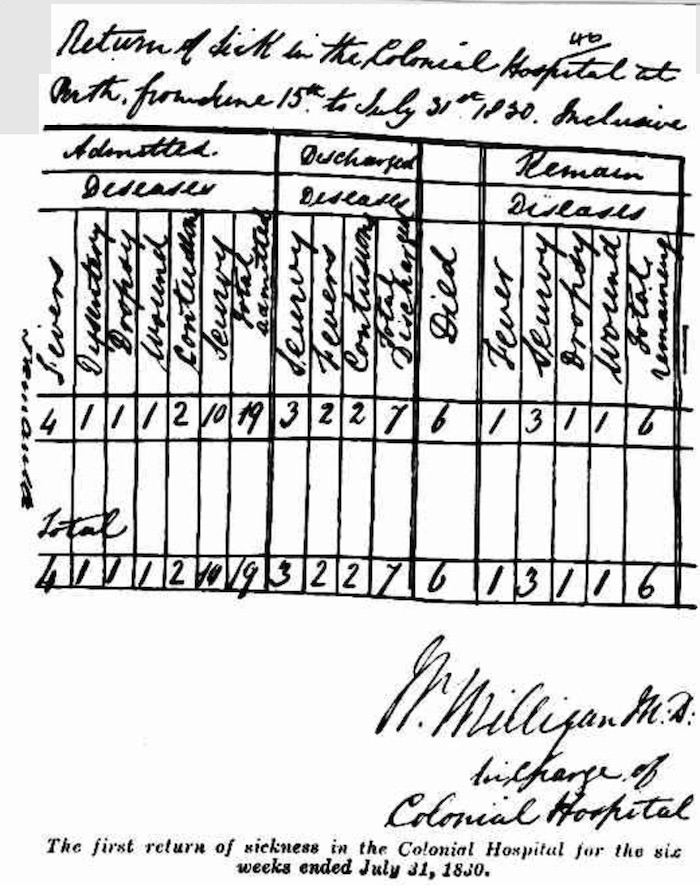 40
Return of Sick in the Colonial Hospital at
Perth, from June 15th to July 31st 1830. Inclusive
Admitted. Discharged Remain
Diseases Diseases Diseases
Fevers Dysentery Dropsy Wound Contusions Scurvy Total admitted Scurvy Fevers Contusions Total Discharged Died Fever Scurvy Dropsy Wound Total remaining
4 1 1 1 2 10 19 3 2 2 7 6 1 3 1 1 6
Total
4 1 1 1 2 10 19 3 2 2 7 6 1 3 1 1 6
W. Milligan M.D.
In charge of
Colonial Hospital
The first return of sickness in the Colonial Hospital for the six
weeks ended July 31, 1830.